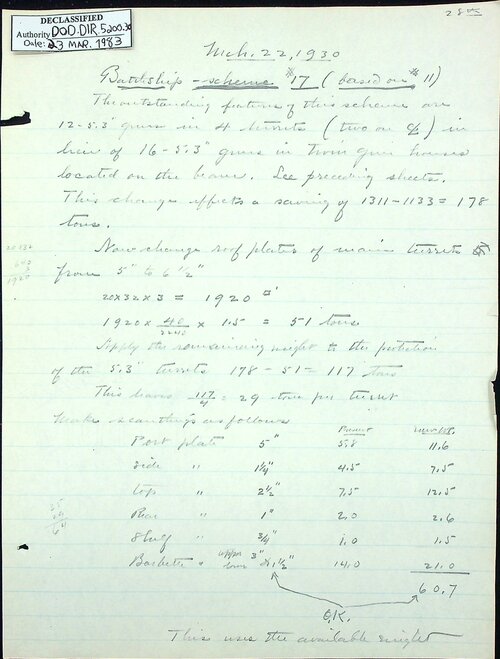 DECLASSIFIED
Authority DOD.DIR.5200.30
Date: 23 MAR. 1983
Mch. 22, 1930
Battleship - scheme #17 (based on #11)
The outstanding feature of this scheme are
12-5.3" guns in 4 turrets (two on ℄) in
lieu of 16-5.3" guns in twin gun houses
located on the beam. See preceding sheets.
This change effects a saving of 1311-1133 = 178
tons.
Now change roof plates of main turrets
from 5" to 6 1/2"
20x32x3 = 1920 □'
1920 x 40/2240 x 1.5 = 51 tons
Apply the remaining weight to the protection
of the 5.3" turrets 178 - 51 = 117 tons
This leaves 117/4 = 29 tons per turret
Make scantlings as follows
Present
Port plate 5" 5.8 11.6
Side " 1 1/4" 4.5 7.5
top " 2 1/2" 7.5 12.5
Rear " 1" 2.0 2.6
Shelf " 3/4" 1.0 1.5
Barbette " upper 3" lower 1 1/2" 14.0 21.0
60.7
O.K.
This uses the available weight